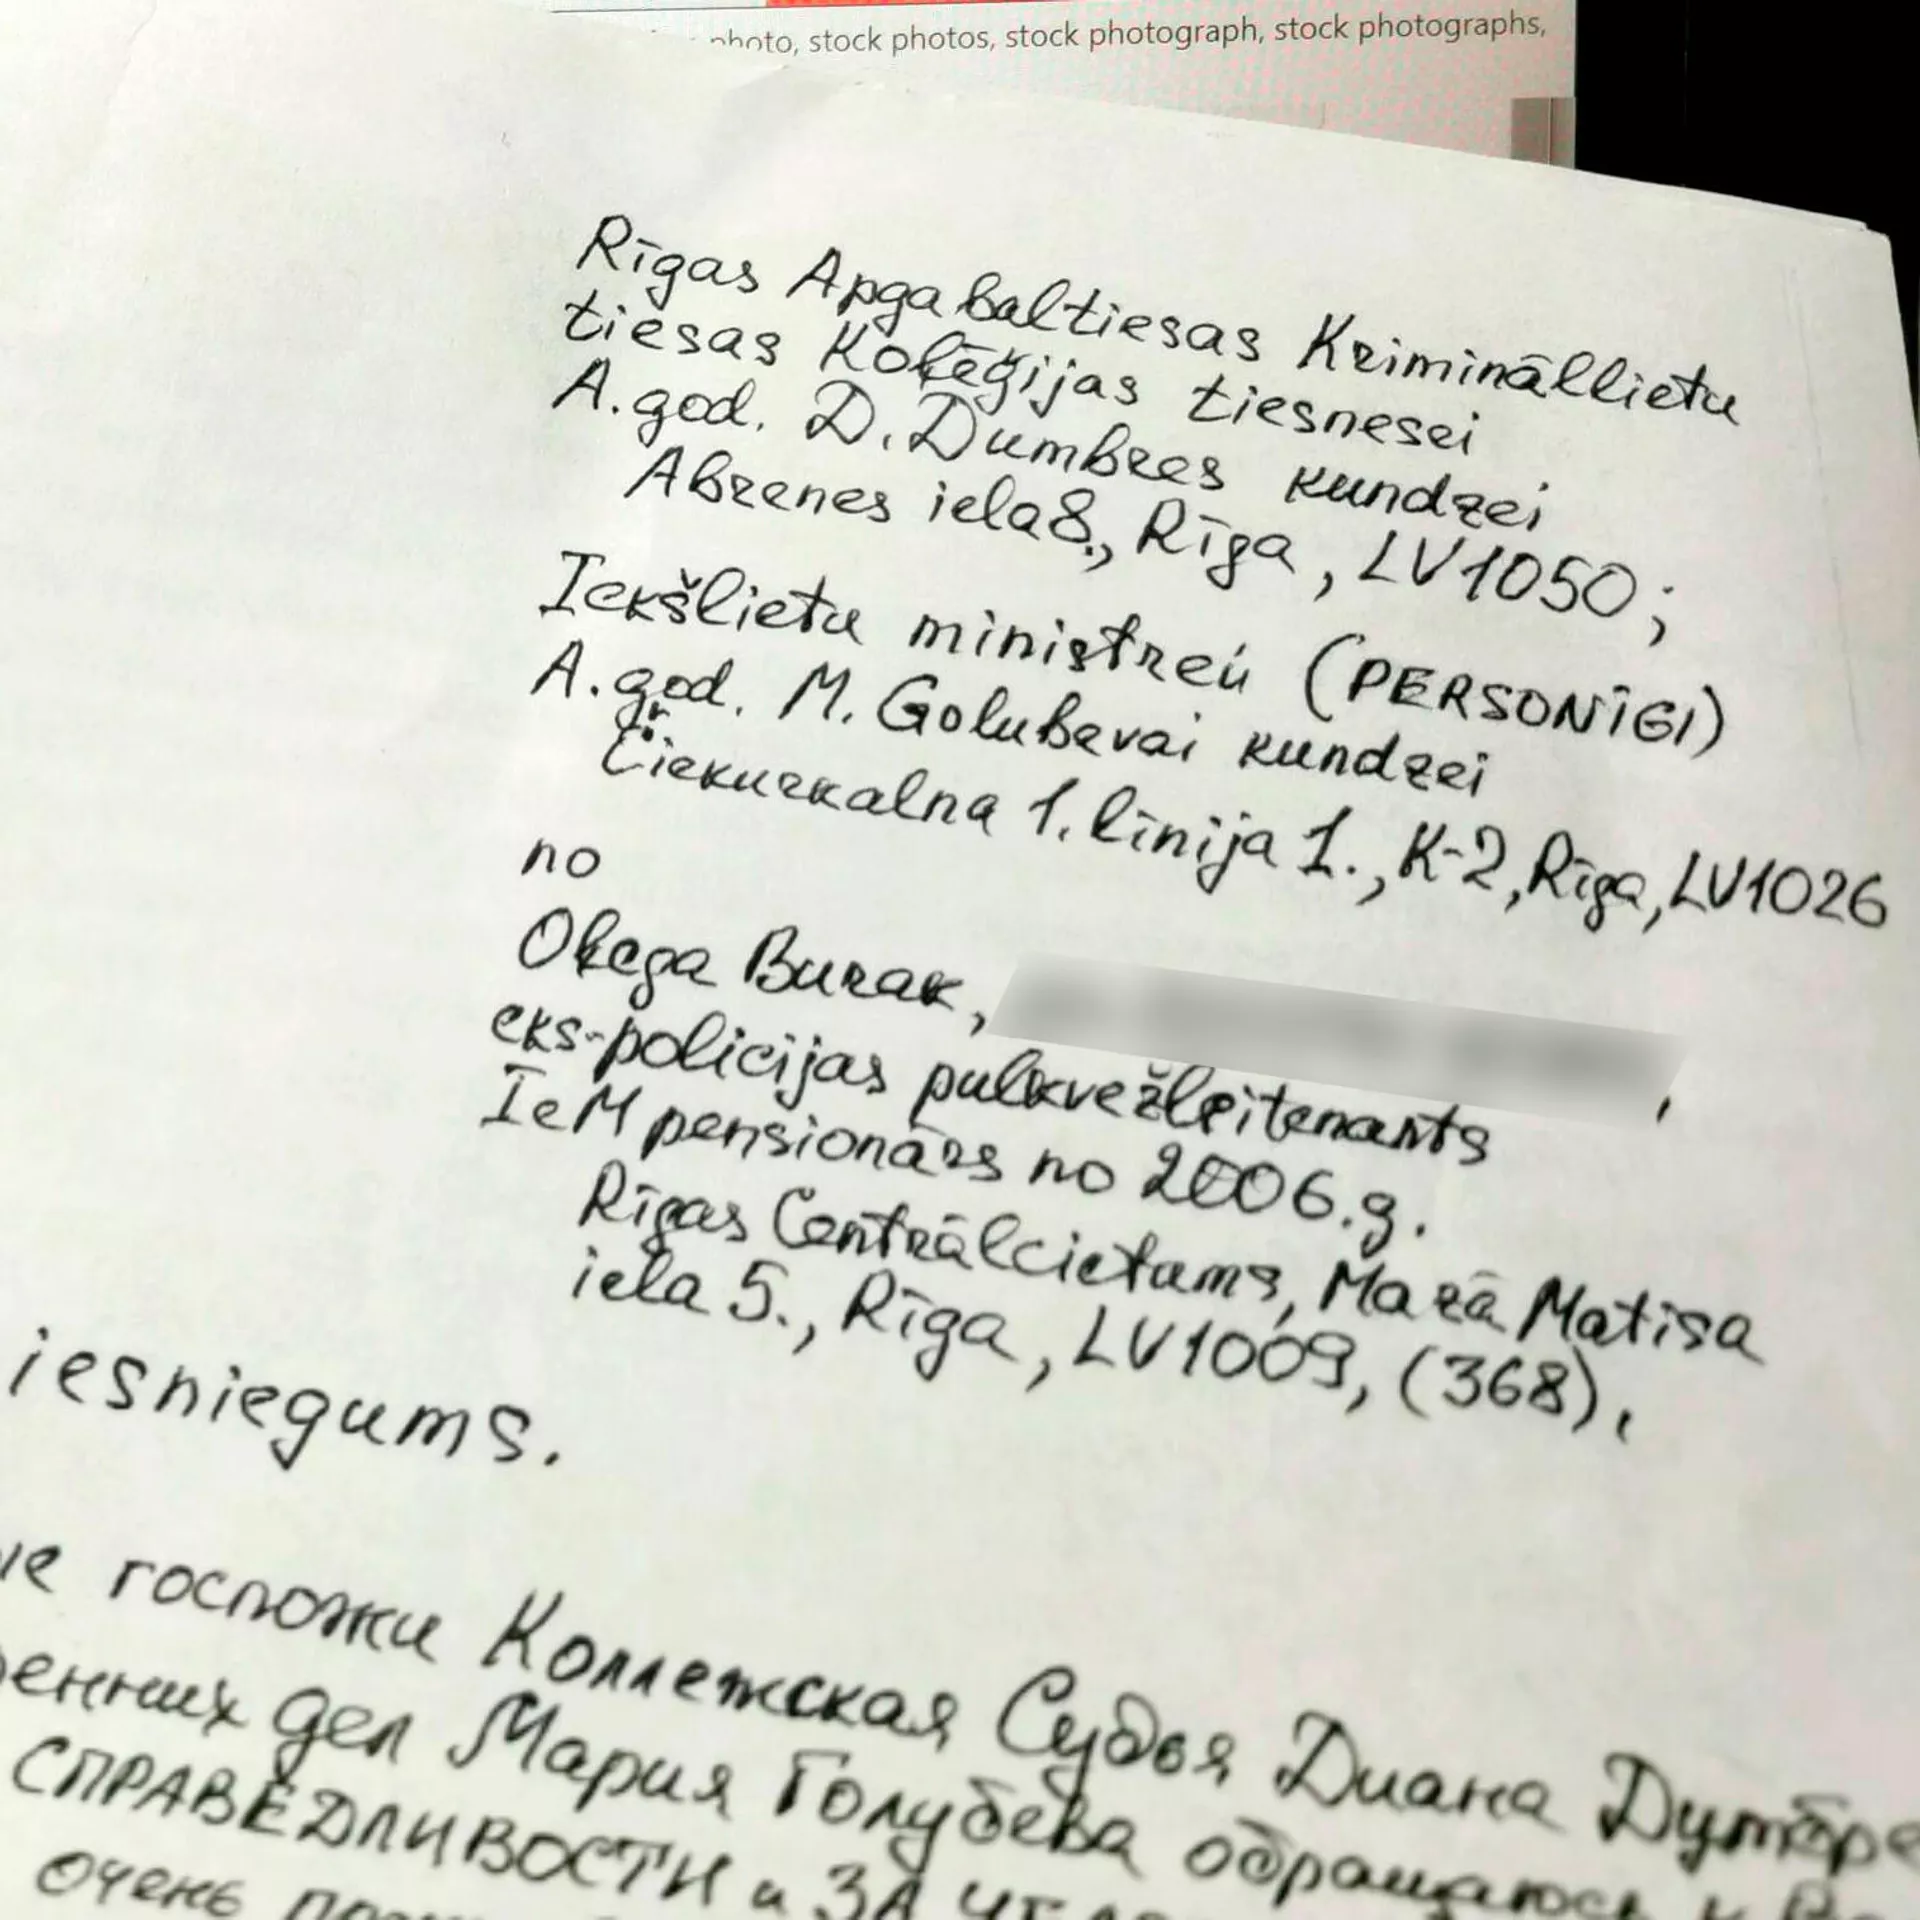 photo, stock photos, stock photograph, stock photographs,
Rīgas Apgabaltiesas Krimināllietu
tiesas Kolēģijas tiesnesei
A.god. D. Dumbres kundzei
Abrenes iela 8., Rīga, LV1050;
Iekšlietu ministrei (PERSONĪGI)
A.god. M. Golubevai kundzei
Čiekurkalna 1. līnija 1., K-2, Rīga, LV1026
no
Oļega Burak,
eks-policijas pulkvežleitenants
IeM pensionārs no 2006.g.
Rīgas Centrālcietums, Mazā Matīsa
iela 5., Rīga, LV1009, (368),
iesniegums.
госпожи Коллежская Судья Диана
дел Мария Голубева обращаюсь к
СПРАВЕДЛИВОСТИ и ЗА
очень